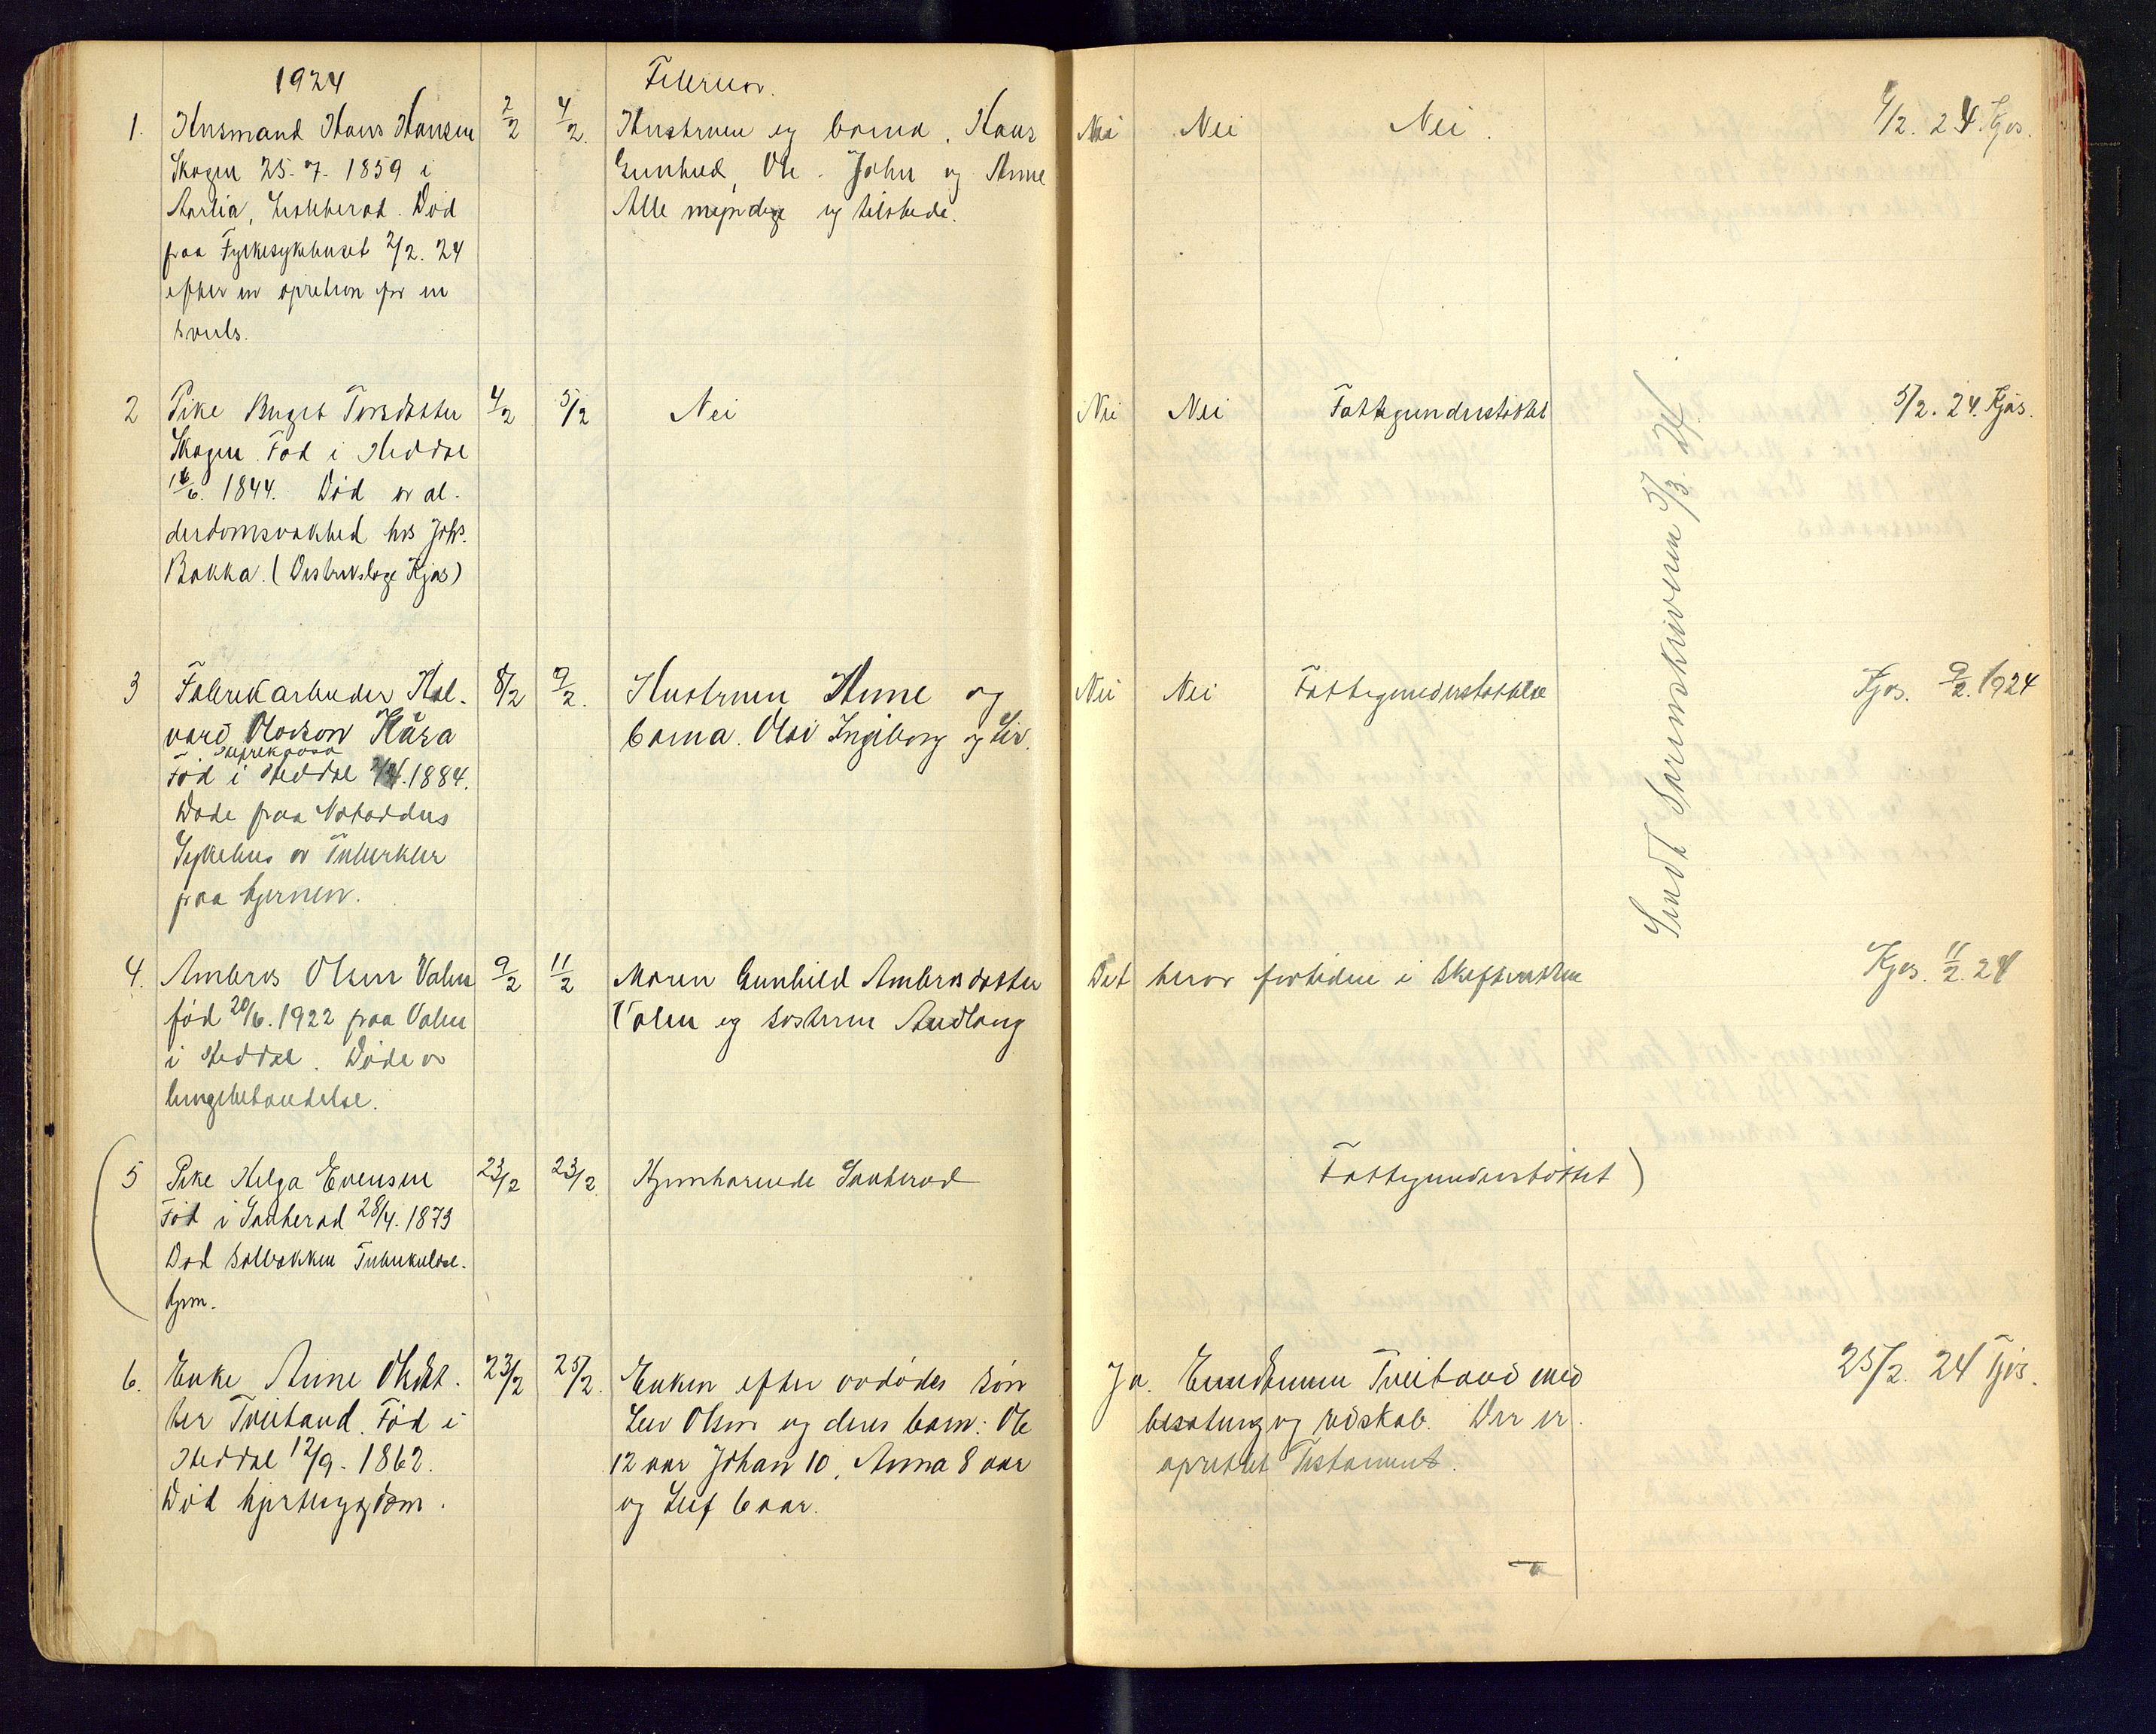 1924
Februar.
1. Husmand Hans Hansen 2/2 4/2. Hustruen og barna. Hans Nei Nei Nei. 4/2. 24 Kjos.
Skogen 25-7-1859 i Gunhild, Ole. John og Anne
Aarlia, Lisleherad. Död Alle myndige og tilstede.
paa Fylkesykehuset 2/2. 24
efter en opretion for en
svuls.
2 Pike Birgit Torsdatter 4/2 5/2 Nei Nei Nei Fattigunderstøttet 5/2. 24. Kjös.
Skogen. Föd i Heddal
/6. 1844. Död av al-
derdomsvakhed hos Johs.
Bakka. (Distrikslege Kjøs)
Sendt Sorenskriveren 5/3. 24.
3 Fabrikarbeider Hal- 8/2 9/2. Hustruen Anne og Nei Nei Fattigunderstøttelse Kjos. 9/2. 1924
vard Olavson Håra barna. Olav Ingeborg og Liv.
Föd i Heddal 1884.
Døde paa Notoddens
Sykehus av Tuberkler
paa hjernen.
4. Ambros Olsen Valen 9/2 11/2 Moren Gunhild Ambrosdatter Det beror fortiden i Skifteretten Kjos. 11/2. 24
föd 20/6. 1922 paa Valen Valen og søsteren Audlaug
i Heddal. Döde av
lungebetændelse.
(5 Pike Helga Evensen 23/2 23/2. Hjemhørende Sauherad Fattigunderstöttet)
Föd i Sauherad 28/4. 1873
Død Solbakken Tuberkulose-
hjem.
6. Enke Anne Olsdat- 23/2 25/2. Enken efter avdødes sön Ja. Eiendommen Tveitand med 25/2. 24 Kjös.
ter Tveitand. Föd i Leiv Olsen og deres barn: Ole besætning og redskab. Der er
Heddal 12/9-1862. 12 aar Johan 10, Anna 8 aar oprettet Testament.
Död hjertesygdom. og Leif 6 aar.